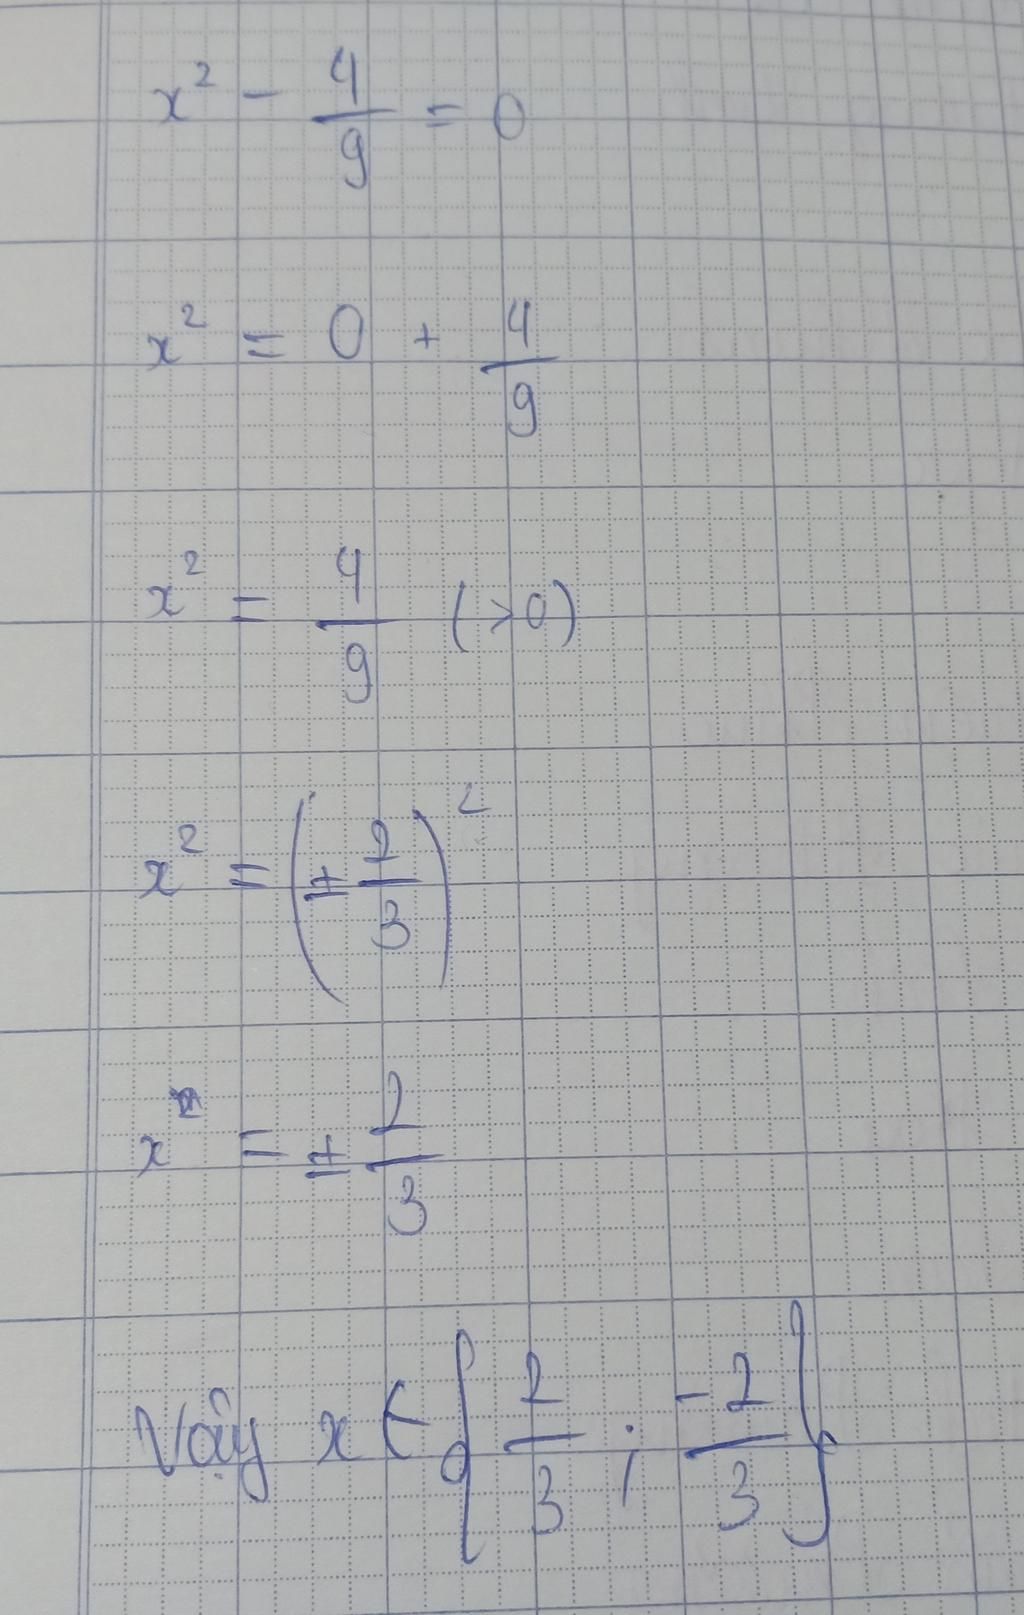 x² - 4/9 = 0
x² = 0 + 4/9
x² = 4/9 (>0)
x² = (± 2/3)²
x = ± 2/3
Vậy x ∈ {2/3 ; -2/3}